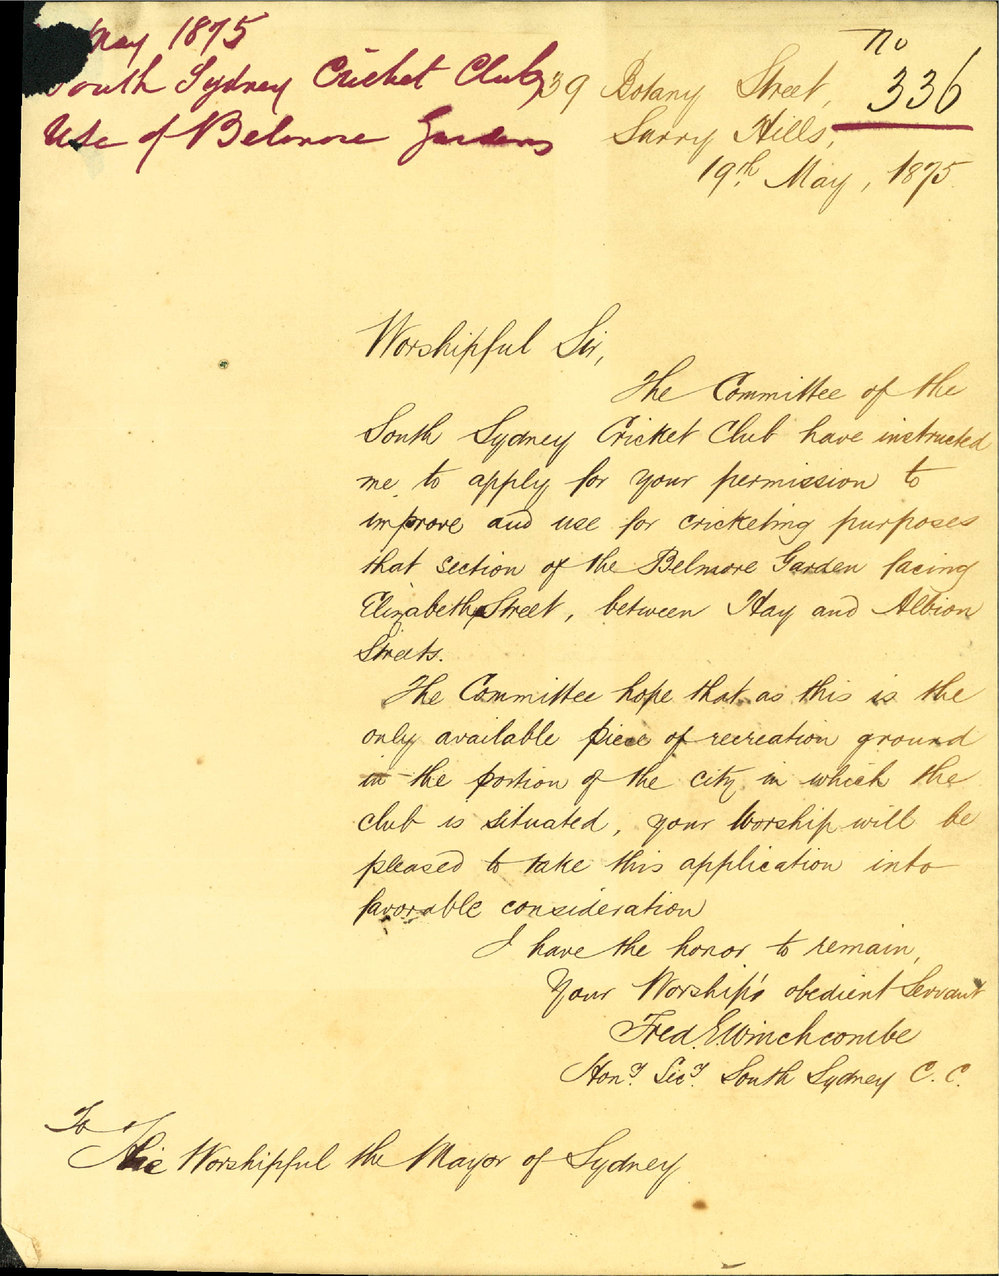 May 1875
South Sydney Cricket Club
Use of Belmore Gardens
No
336
39 Botany Street,
Surry Hills,
19th May, 1875.
Worshipful Sir,
The Committee of the
South Sydney Cricket Club have instructed
me to apply for your permission to
improve and use for cricketing purposes
that section of the Belmore Garden facing
Elizabeth Street, between Hay and Albion
Streets.
The Committee hope that as this is the
only available piece of recreation ground
in the portion of the city in which the
club is situated, your Worship will be
pleased to take this application into
favorable consideration
I have the honor to remain,
Your Worship's obedient Servant
Fred. E. Winchcombe
Hony. Secy. South Sydney C. C.
To
His Worshipful the Mayor of Sydney